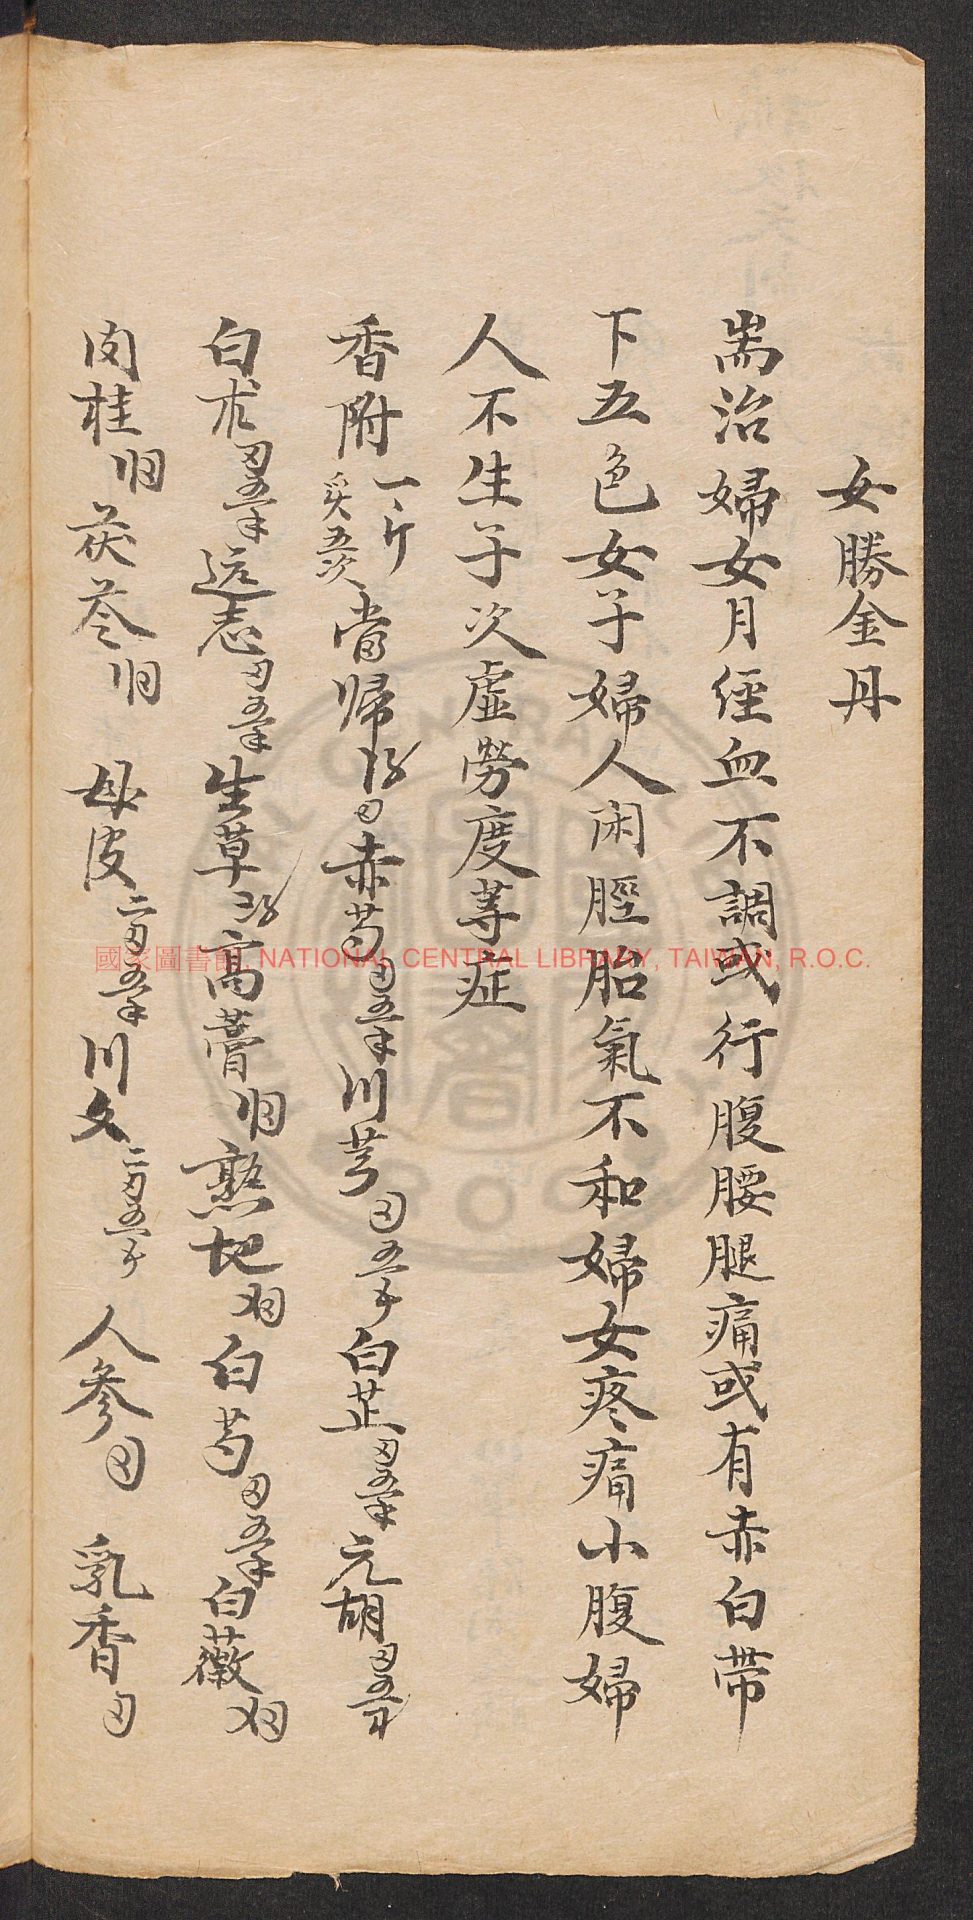 女勝金丹
耑治婦女月經血不調或行腹腰腿痛或有赤白帶
下五色女子婦人閑脛胎氣不和婦女疼痛小腹婦
人不生子次虛勞度等症
香附一斤炙五次當歸赤芍五半川芎五半白芷五半元胡五半
白朮五半远志五半生草高藁熟地白芍五半白薇
肉桂茯苓母皮二五半川文二五半人參乳香
國家圖書館, NATIONAL CENTRAL LIBRARY, TAIWAN, R.O.C.